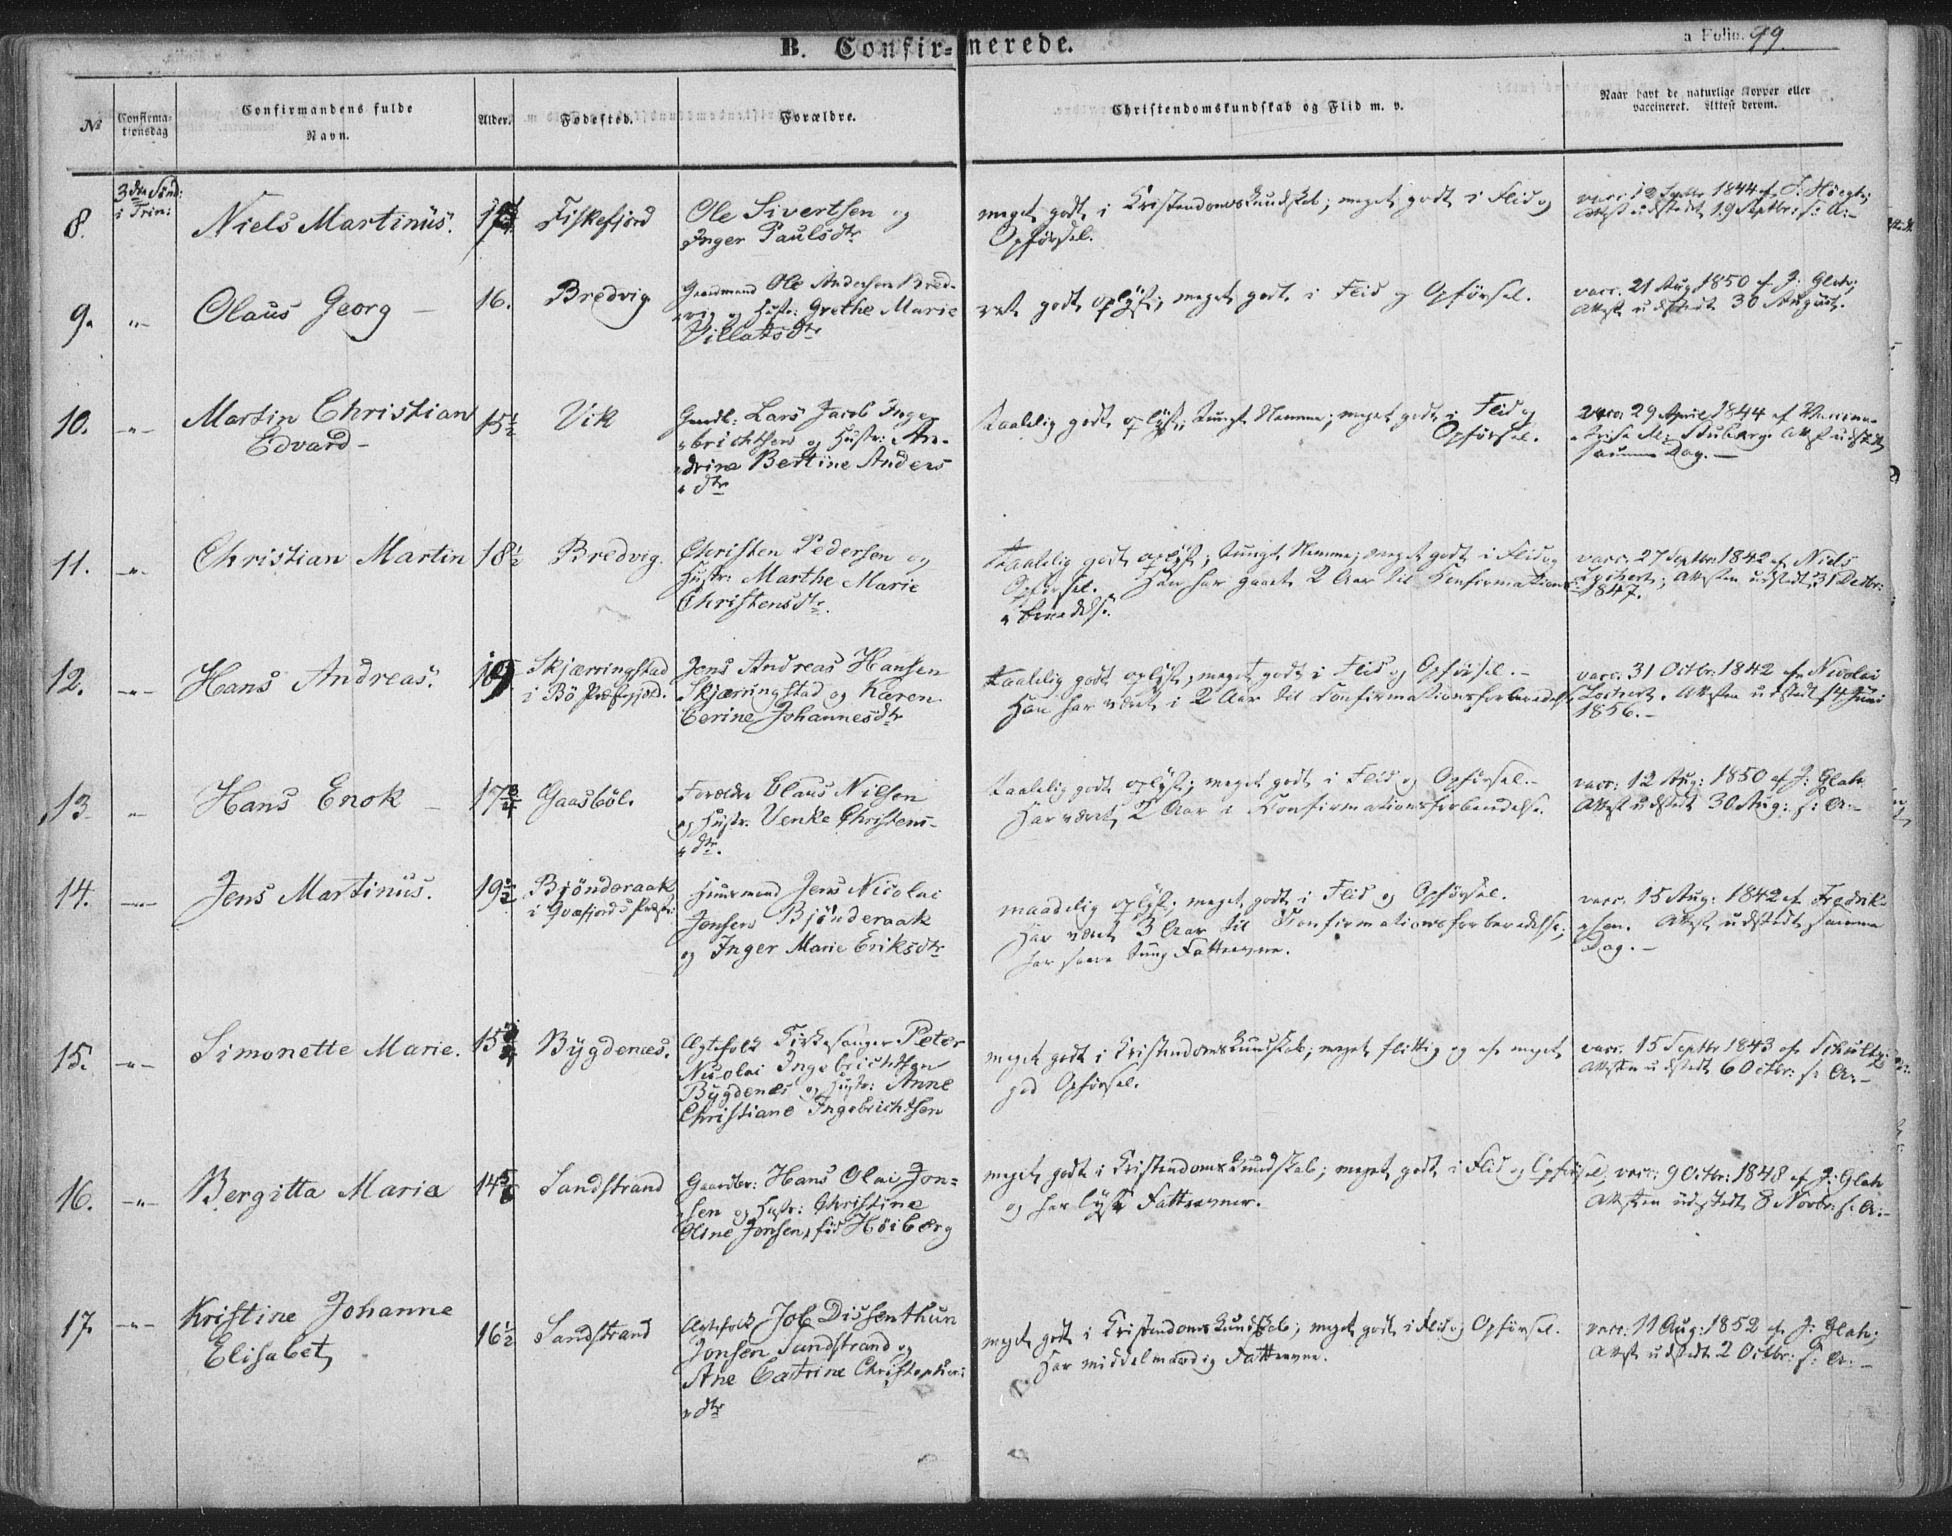 B. Confir=nerede.
a Folio. 99.
No
Confirma-
tionsdag
Confirmandens fulde
Navn.
Alder.
Fødested.
Forældre.
Christendomskundskab og Flid m. v.
Naar havt de naturlige Kopper eller
vaccineret. Attest derom.
8.
3die Sönd:
i Trin:
Niels Martinüs.
Fiskefjord
Ole Sivertsen og
Inger Paulsdtr
meget godt i Kristendomskundskab; meget godt i Flid og
Opförsel.
vacc: 12 Septbr 1844 af
Attest udstedt 19 Septbr: s: A:-
9.
-"-
Olaus Georg -
16.
Bredvig
Gaardmand Ole Andersen Bred-
vig og Hustr: Grethe Marie
Pillattsdtr
ret godt oplyst; meget godt i Flid og Opförsel.
vacc. 21 Aug 1850 af J: Glatz;
Attest udstedt 30 August.
10.
-"-
Martin Christian
Edvard -
15½
Vik
Gaardb: Lars Jacob Inge-
"brichtsen og Hustr: An-
"drine Bertine Anders
"dtr
Taalelig godt oplyst; tungt Nemme; meget godt i Flid og
Opförsel.
vacc: 29 April 1844 af
Attest udstedt
samme Dag. -
11.
-"-
Christian Martin
18½
Bredvig.
Christen Pedersen og
Hustr: Marthe Marie
Christensdtr.
Taalelig godt oplyst; tungt Nemme; meget godt i Flid og
Opförsel. Han har gaaet 2 Aar til Konfirmations-
"beredelse.
vacc. 27 Septbr 1842 af Niels
Lockert; Attesten udstedt 31 Decbr:
1847.
12.
-"-
Hans Andreas.
19
Skjærringstad
i Bö Præstegjeld.
Jens Andreas Hansen
Skjærringstad og Karen
Cerine Johannesdtr
Taalelig godt oplyst; meget godt i Flid og Opförsel. -
Han har været i 2 Aar til Konfirmationsforberedelse
vacc: 31 Octbr: 1842 af Nicolai
Lockert. Attesten udstedt 14 Juni
1856. -
13.
-"-
Hans Enok -
17¾
Gaasböl.
Forældre Claus Nilsen
og Hustr. Venke Christens-
"dtr.
Taalelig godt oplyst; meget godt i Flid og Opförsel. -
Har været 2 Aar i Konfirmationsforberedelse.
vacc: 12 Aug: 1850 af J: Glatz
Attest udstedt 30 Aug: s: A:-
14.
-"-
Jens Martinüs.
19½
Bjönderaak
i Qvæfjords Præst:
Huusmand Jens Nicolai
Jensen Bjönderaak
og Inger Marie Eriksdtr
maadelig oplyst; meget godt i Flid og Opförsel.
Har været 3 Aar til Konfirmationsforberedelse;
har svare tung Fatteevne.
vacc. 15 Aug: 1842 af Fredrik-
"sen. Attest udstedt samme
Dag. -
15.
-"-
Simonette Marie.
15¾
Bÿgdenæs.
Ægtefolk Kirkesanger Peter
Nicolai Ingebrichtsen
Bÿgdenæs og Hustr: Anne
Christiane Ingebrichtsen
meget godt i Kristendomskundskab; meget flittig og af meget
god Opförsel.
vacc. 15 Septbr 1843 af Schultz;
Attesten udstedt 6 Octbr: s: A:-
16.
-"-
Bergitta Maria
14⅚
Sandstrand
Gaardbr: Hans Olai Jon=
"sen og Hustr: Christine
Oline Jonsen, föd Höiberg
meget godt i Kristendomskundskab; meget godt i Flid og Opförsel,
og har lyst Fatteevner.
vacc: 9 Octbr: 1848 af J: Glatz
Attesten udstedt 8 Novbr: s: A:-
17.
-"-
Kristine Johanne
Elisabet
16½
Sandstrand
Ægtefolk Job Dissenthun
Jonsen Sandstrand og
Ane Catrine Christopher:
"dtr
meget godt i Kristendomskundskab; meget godt i Flid og Opförsel.
Har middelmaadig Fatteevne.
vacc: 11 Aug: 1852 af J: Glatz;
Attest udstedt 2 Octbr: s: A: -